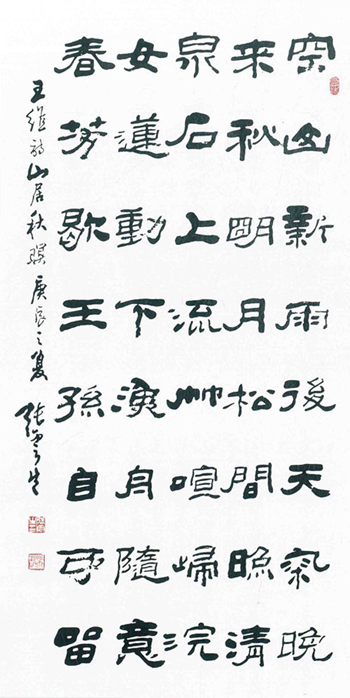 空山新雨後天氣晚
来秋明月松間照清
泉石上流竹喧歸浣
女蓮動下漁舟隨意
春芳歇王孫自可留
王維詩山居秋暝 庚辰之夏 張